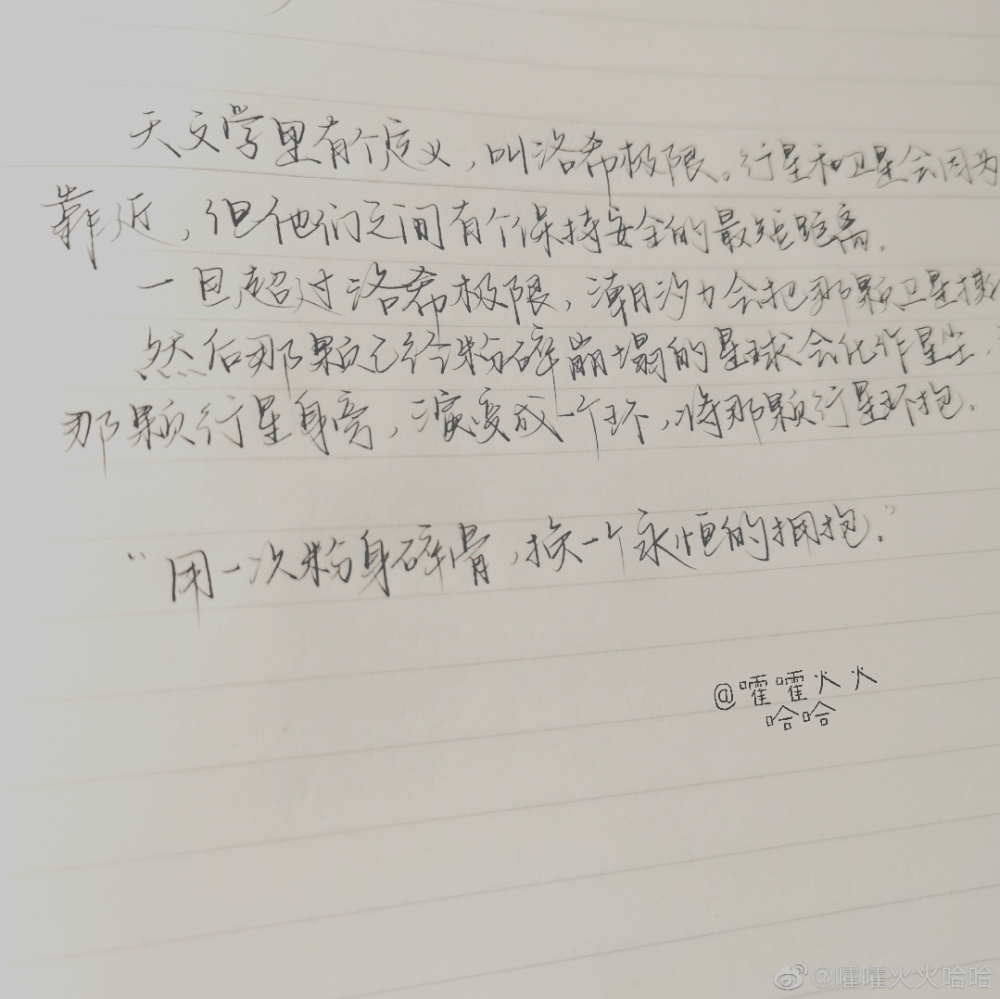 天文学里有个定义，叫洛希极限。行星和卫星会因为
靠近，但他们之间有个保持安全的最短距离.
一旦超过洛希极限，潮汐力会把那颗卫星撕
然后那颗已经粉碎崩塌的星球会化作星尘，
那颗行星身旁，演变成一个环，将那颗行星环抱.
“用一次粉身碎骨，换一个永恒的拥抱.”
@嚯嚯火火
哈哈
@嚯嚯火火哈哈